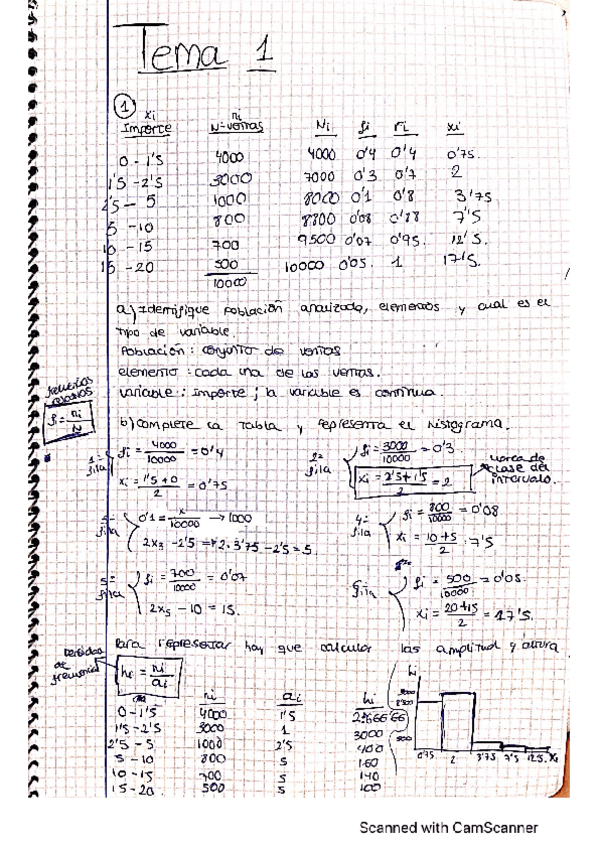 Tema 1
1
xi ni
Importe Nº ventas Ni fi Fi xi
0 - 1'5 4000 4000 0'4 0'4 0'75.
1'5 - 2'5 3000 7000 0'3 0'7 2
2'5 - 5 1000 8000 0'1 0'8 3'75
5 - 10 800 8800 0'08 0'88 7'5
10 - 15 700 9500 0'07 0'95. 12'5.
15 - 20 500 10000 0'05. 1 17'5.
10000
a) Identifique población analizada, elementos y cual es el
tipo de variable.
Población: conjunto de ventas
elemento: cada una de las ventas.
variable: Importe; la variable es continua.
b) complete la tabla y representa el histograma.
fi = ni / N
1ª fila fi = 4000 / 10000 = 0'4
xi = 1'5 + 0 / 2 = 0'75
2ª fila fi = 3000 / 10000 = 0'3
xi = 2'5 + 1'5 / 2 = 2
marca de clase del intervalo.
fila 0'1 = x / 10000 → 1000
2x3 - 2'5 = 2·3'75 - 2'5 = 5
4ª fila fi = 800 / 10000 = 0'08
xi = 10 + 5 / 2 = 7'5
5ª fila fi = 700 / 10000 = 0'07
2x5 - 10 = 15.
6ª fila fi = 500 / 10000 = 0'05.
xi = 20 + 15 / 2 = 17'5.
Para representar hay que calcular las amplitud y altura
hi = ni / ai
ni ai hi
0 - 1'5 4000 1'5 2666'66
1'5 - 2'5 3000 1 3000
2'5 - 5 1000 2'5 400
5 - 10 800 5 160
10 - 15 700 5 140
15 - 20 500 5 100
hi
0'75 2 3'75 7'5 12.5 Xi
Scanned with CamScanner